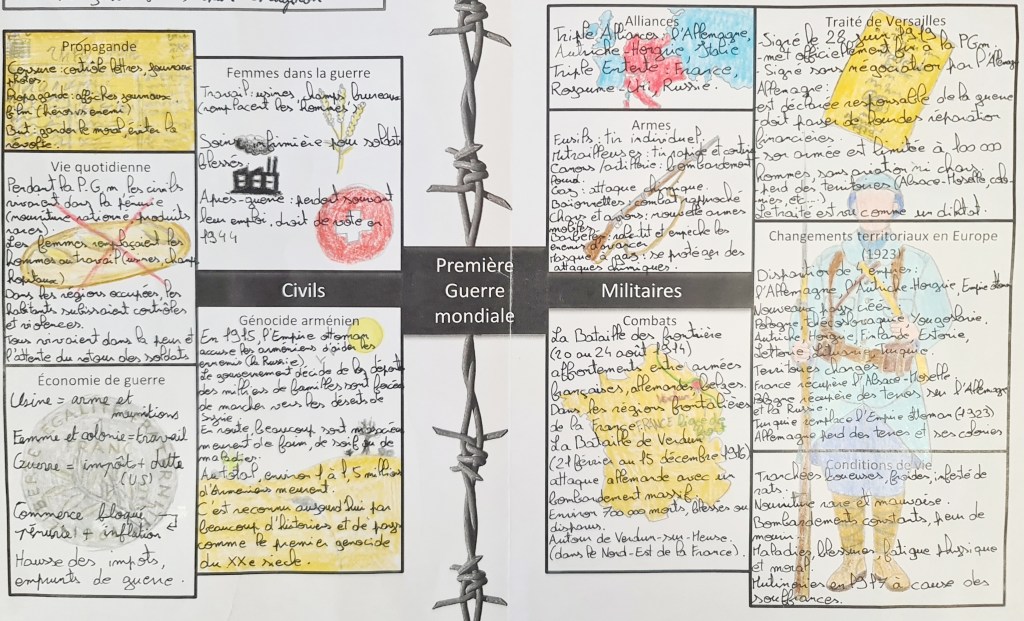 Propagande
Censure : contrôle lettres, journaux
photos
Propagande : affiches journaux
film (héros vs ennemi)
But : garder le moral, éviter la
révolte.
Vie quotidienne
Pendant la P.G.m les civils
vivaient dans la pénurie
(nourriture rationné produits
rares).
Les femmes remplaçaient les
hommes au travail (usines, champs
hopitaux)
Dans les régions occupées, les
habitants subissaient contrôles
et violences.
Tous vivaient dans la peur et
l'attente du retour des soldats
Économie de guerre
Usine = arme et
munitions
Femme et colonie = travail
Guerre = impôt + dette
(US)
Commerce bloqué →
Pénurie + inflation
Hausse des impots,
emprunts de guerre.
Femmes dans la guerre
Travail : usines, champs, bureaux
(remplacent les hommes)
Soins : infirmière pour soldats
blessés
Après-guerre : perdent souvent
leur emploi, droit de vote en
1944
Civils
Génocide arménien
En 1915, l'Empire ottoman
accuse les arméniens d'aider les
ennemis (la Russie)
Le gouvernement décide de les déporter
des millions de familles sont forcées
de marcher vers les déserts de
Syrie.
En route, beaucoup sont
meurent de faim, de soif ou de
maladies.
Au total, environ 1 à 1,5 millions
d'Arméniens meurent.
C'est reconnu aujourd'hui par
beaucoup d'historiens et de pays
comme le premier génocide
du XXe siècle.
Première
Guerre
mondiale
Alliances
Triple Alliances : l'Allemagne,
Autriche Hongrie, Italie
Triple Entente : France,
Royaume-Uni, Russie.
Armes
Fusils : tir individuel
Mitrailleuses : tir rapide et continu
Canons / artillerie : bombardement
lourd.
Gaz : attaque chimique.
Baionnettes : combat rapproché
Chars et avions : nouvelle armes
motifés.
Barbelés : ralentit et empêche les
ennemis d'avancer
Masque à gaz : se protéger des
attaques chimiques.
Militaires
Combats
La Bataille des frontière
(20 au 24 août 1914)
affrontements entre armées
françaises, allemandes, belges.
Dans les régions frontalières
de la France
La Bataille de Verdun
(21 février au 15 décembre 1916)
attaque allemande avec un
bombardement massif.
Environ 700 000 morts, blessés ou
disparus.
Autour de Verdun-sur-Meuse.
(dans le Nord-Est de la France).
Traité de Versailles
- Signé le 28 juin 1919
- met officiellement fin à la P.G.m.
- Signé sans négociation par l'Allemagne
Allemagne :
est déclarée responsable de la guerre
- doit payer de lourdes réparation
financières.
- son armée est limitée à 100 000
hommes, sans aviation ni chars
- perd des territoires (Alsace-Moselle, colo-
nies, etc...)
Le traité est vu comme un diktat.
Changements territoriaux en Europe
(1923)
Disparition de 4 empires :
l'Allemagne, l'Autriche-Hongrie, Empire Ottoman
Nouveaux pays créés :
Pologne, Tchécoslovaquie, Yougoslavie,
Autriche, Hongrie, Finlande, Estonie,
Lettonie, Lituanie, Turquie.
Territoires changés :
France récupère l'Alsace-Moselle
Pologne récupère des terres sur l'Allemagne
et la Russie.
Turquie remplace l'Empire Ottoman (1923)
Allemagne perd des terres et ses colonies
Conditions de vie
Tranchées boueuses, froides, infesté de
rats.
Nourriture rare et mauvaise.
Bombardements constants, peur de
mourir.
Maladies, blessures, fatigue physique
et moral.
Mutineries en 1917 à cause des
souffrances.